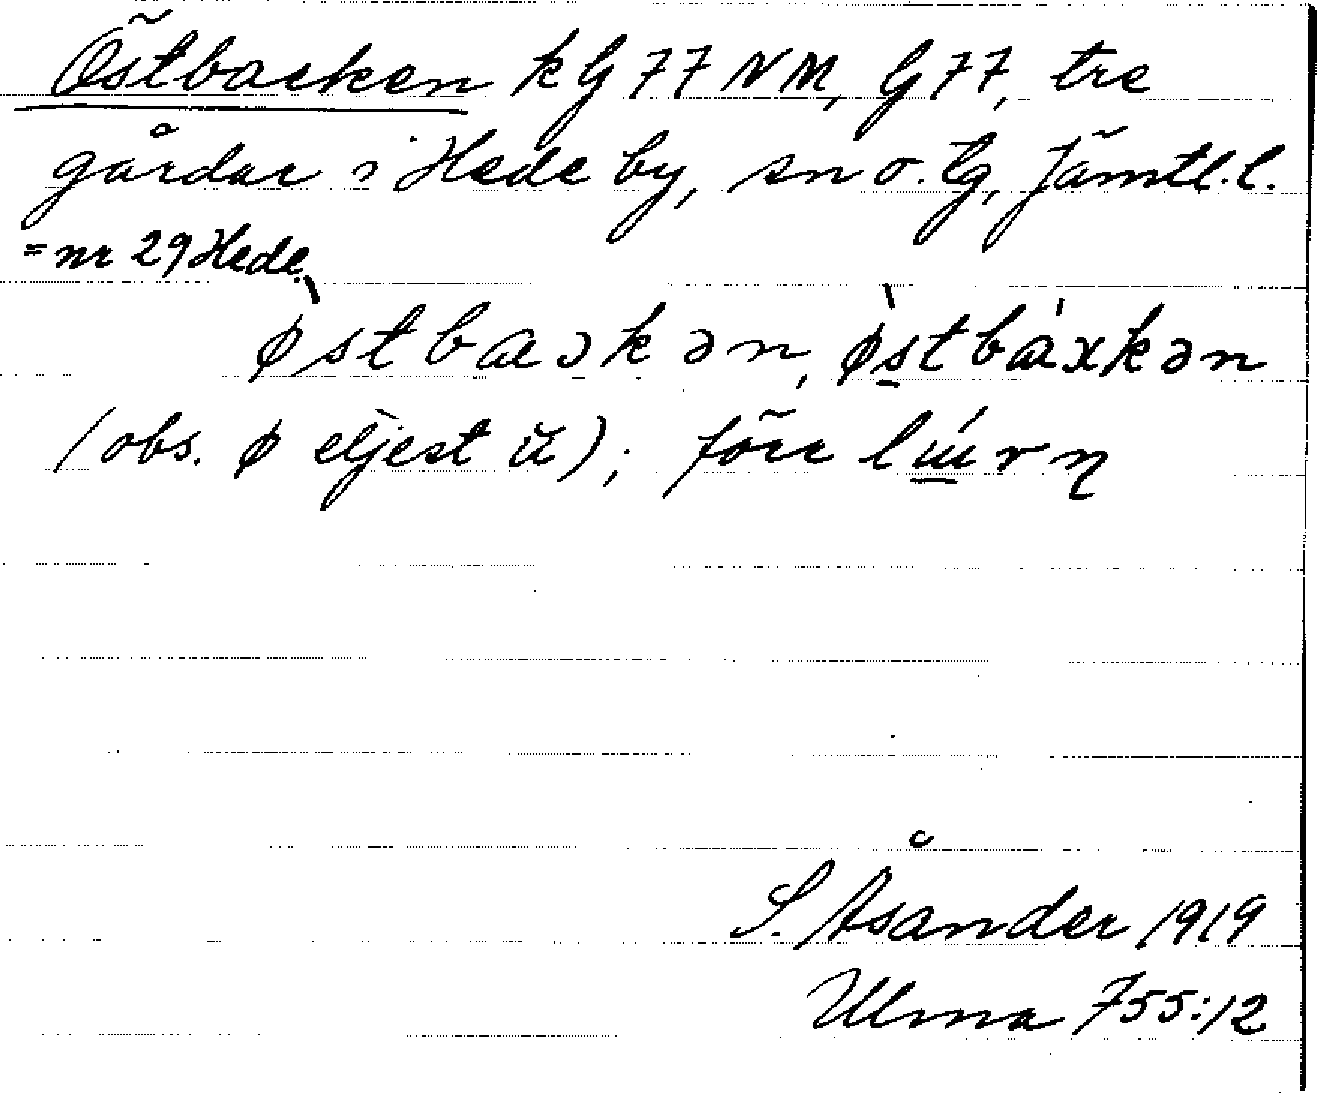 Östbacken kG 77 NM, G 77, tre
gårdar i Hede by, sn o. tg, Jämtl. l.
= nr 29 Hede
østbaɔkən, østbaxkən
(obs. ø eljest ü); förr
S. Åsander 1919
Ulma 755:12